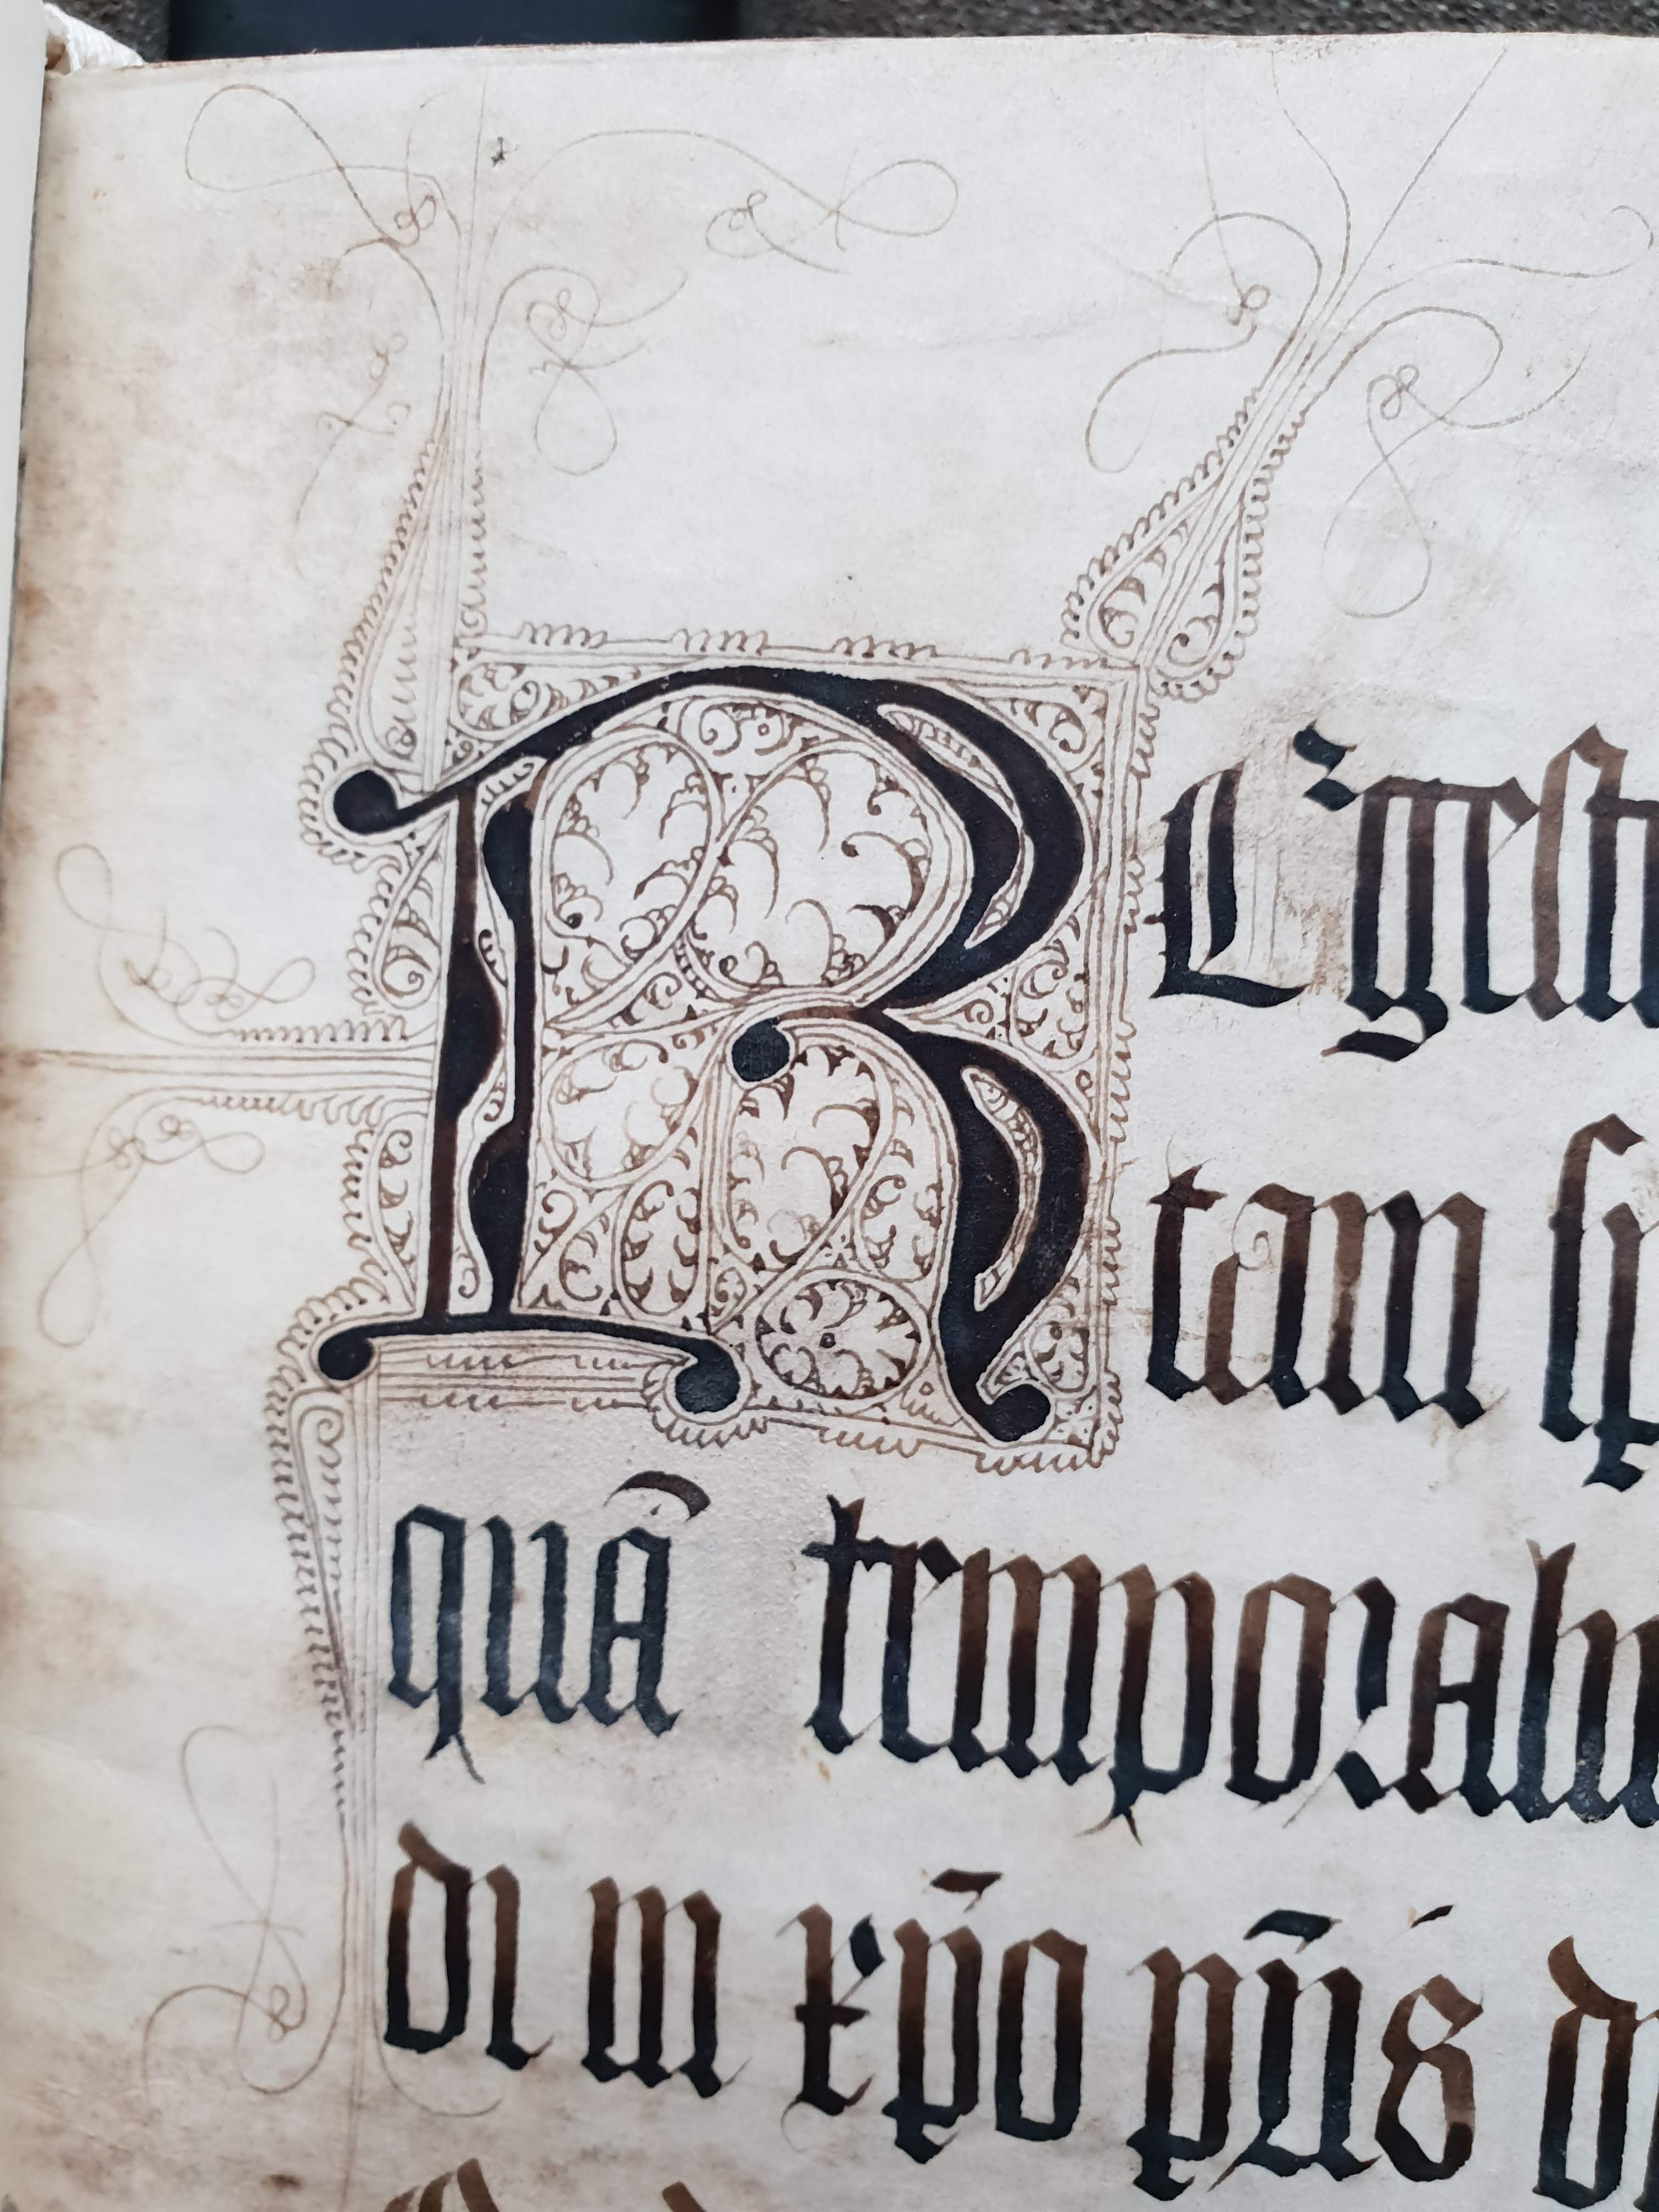 RE' gest
tam sp
quā temporali
di in xp̄o pr̄is d